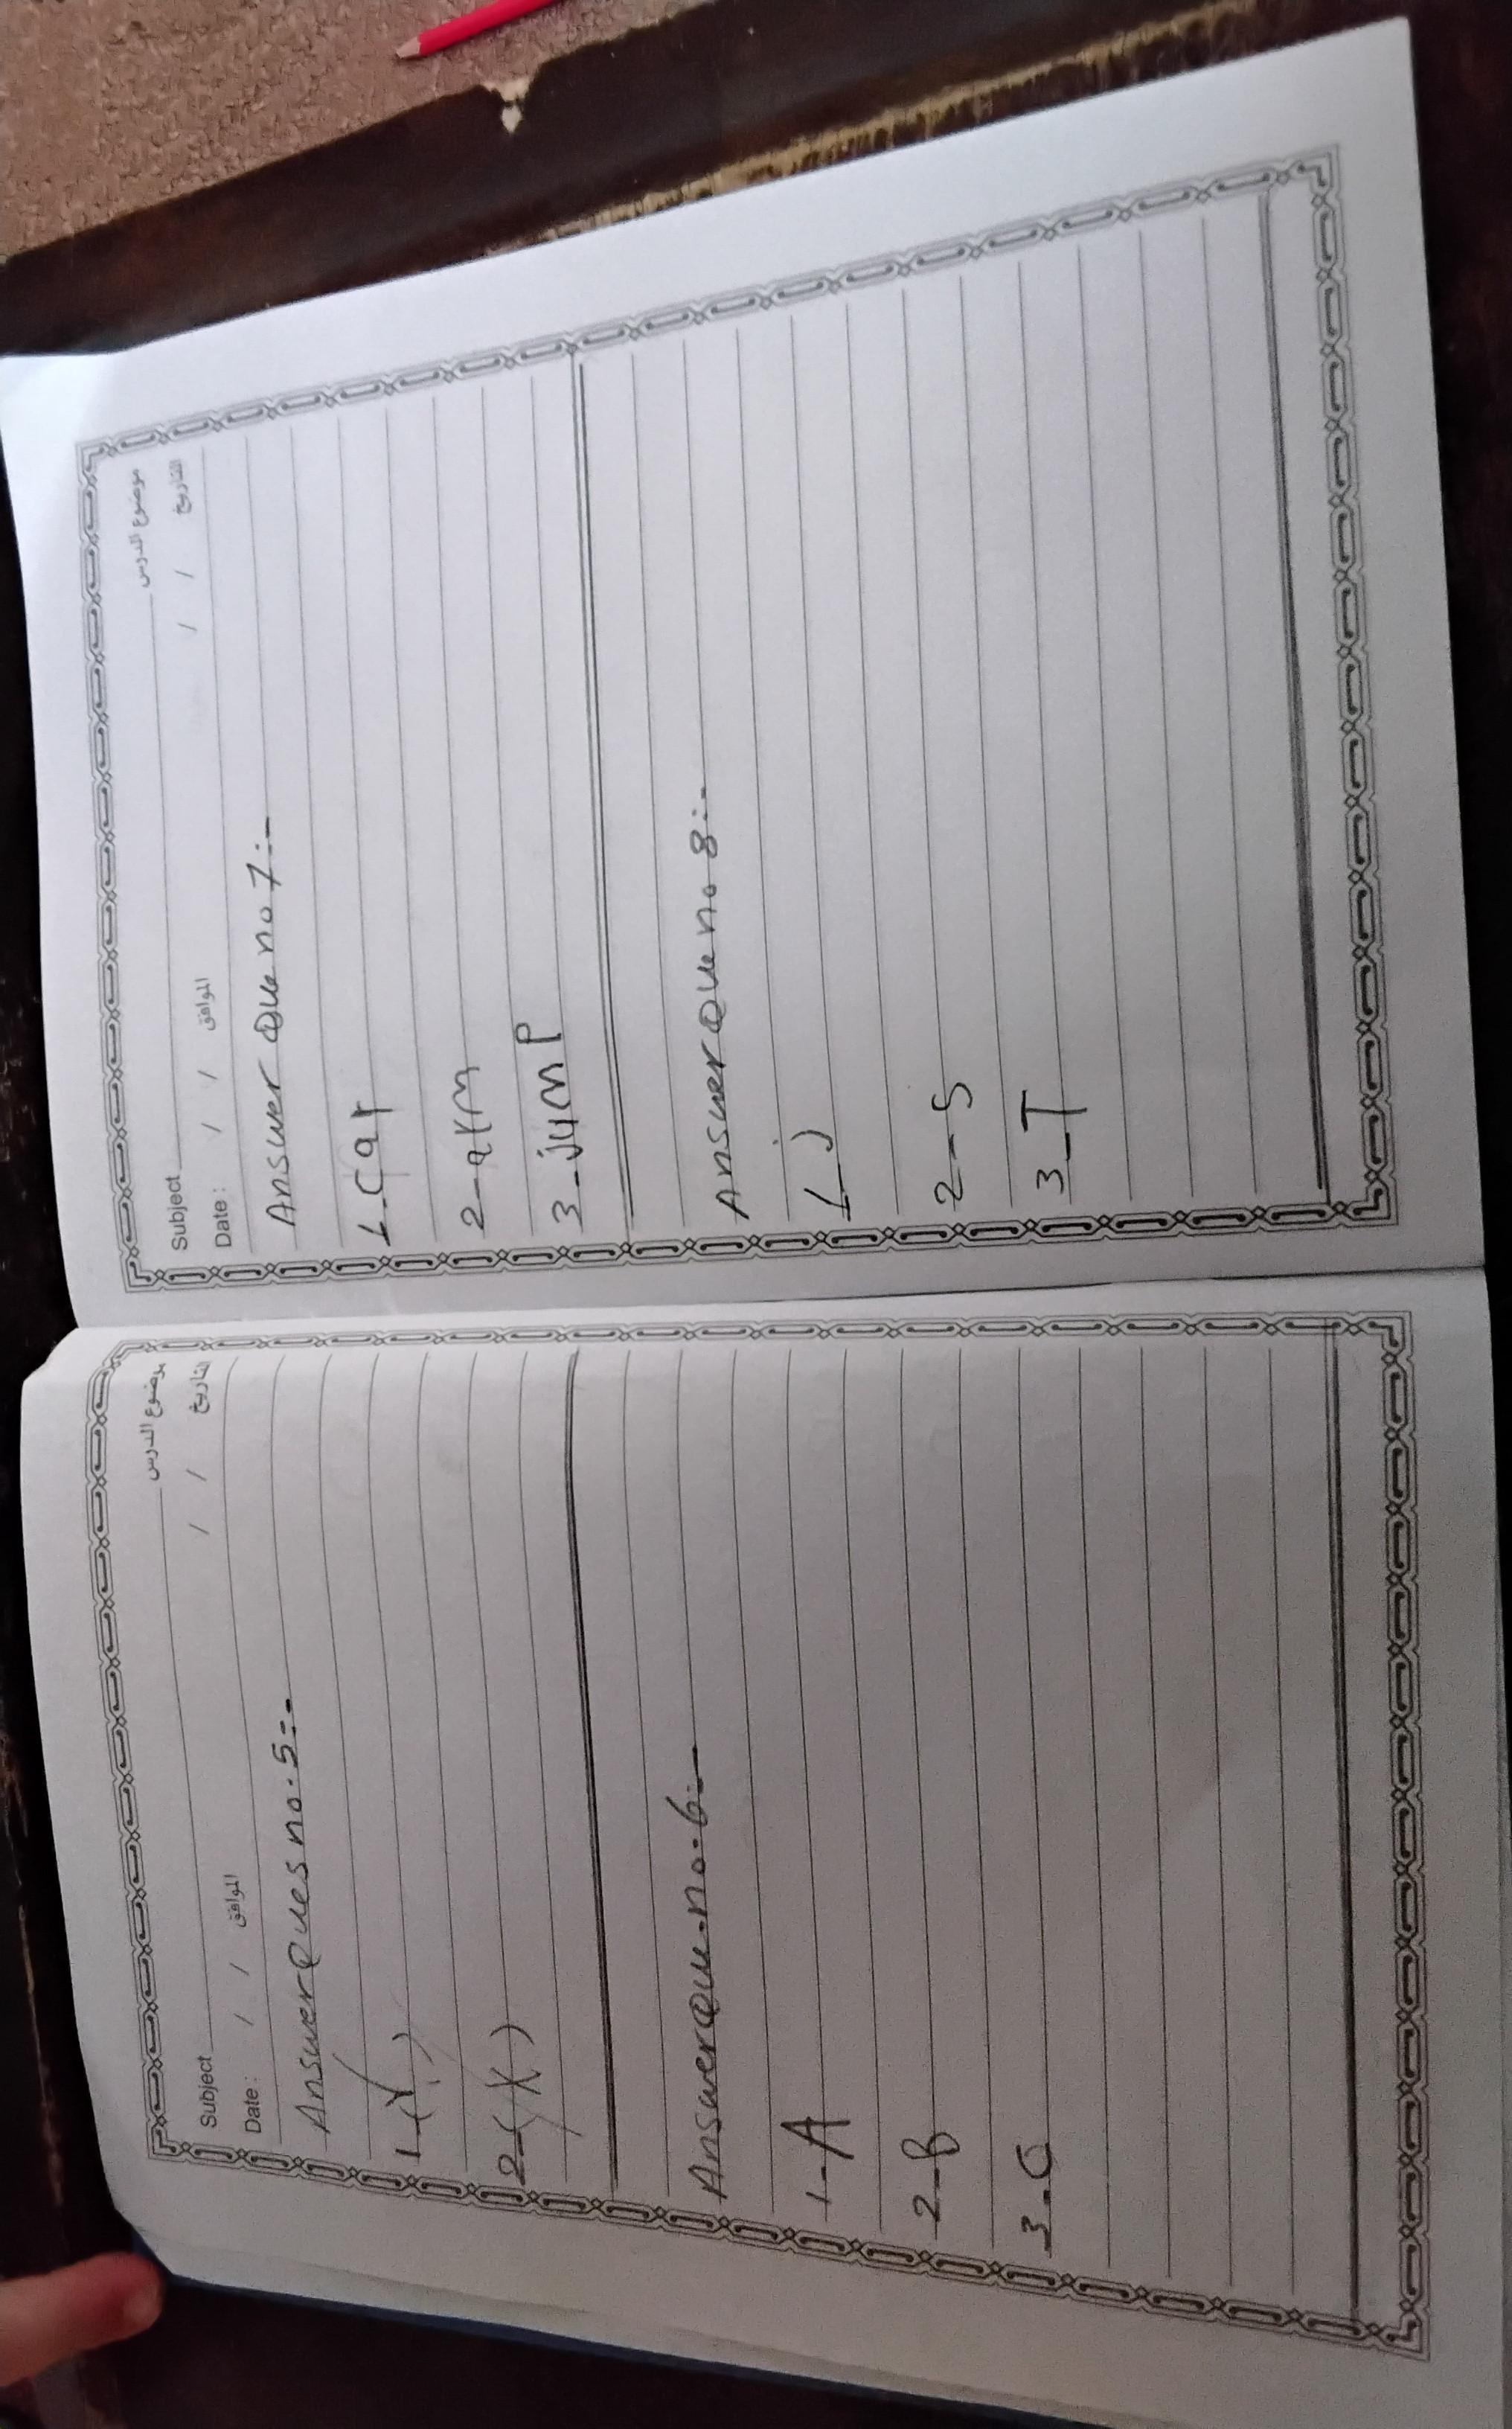 Subject موضوع الدرس
Date : / / الموافق / / التاريخ
Answer Ques no. 5:-
1-(√)
2-(X)
Answer Que. no. 6:-
1-A
2-B
3-C
Subject موضوع الدرس
Date : / / الموافق / / التاريخ
Answer Que no 7:-
1-Car
2-arm
3-jumP
Answer Que no 8:-
1-j
2-S
3-T